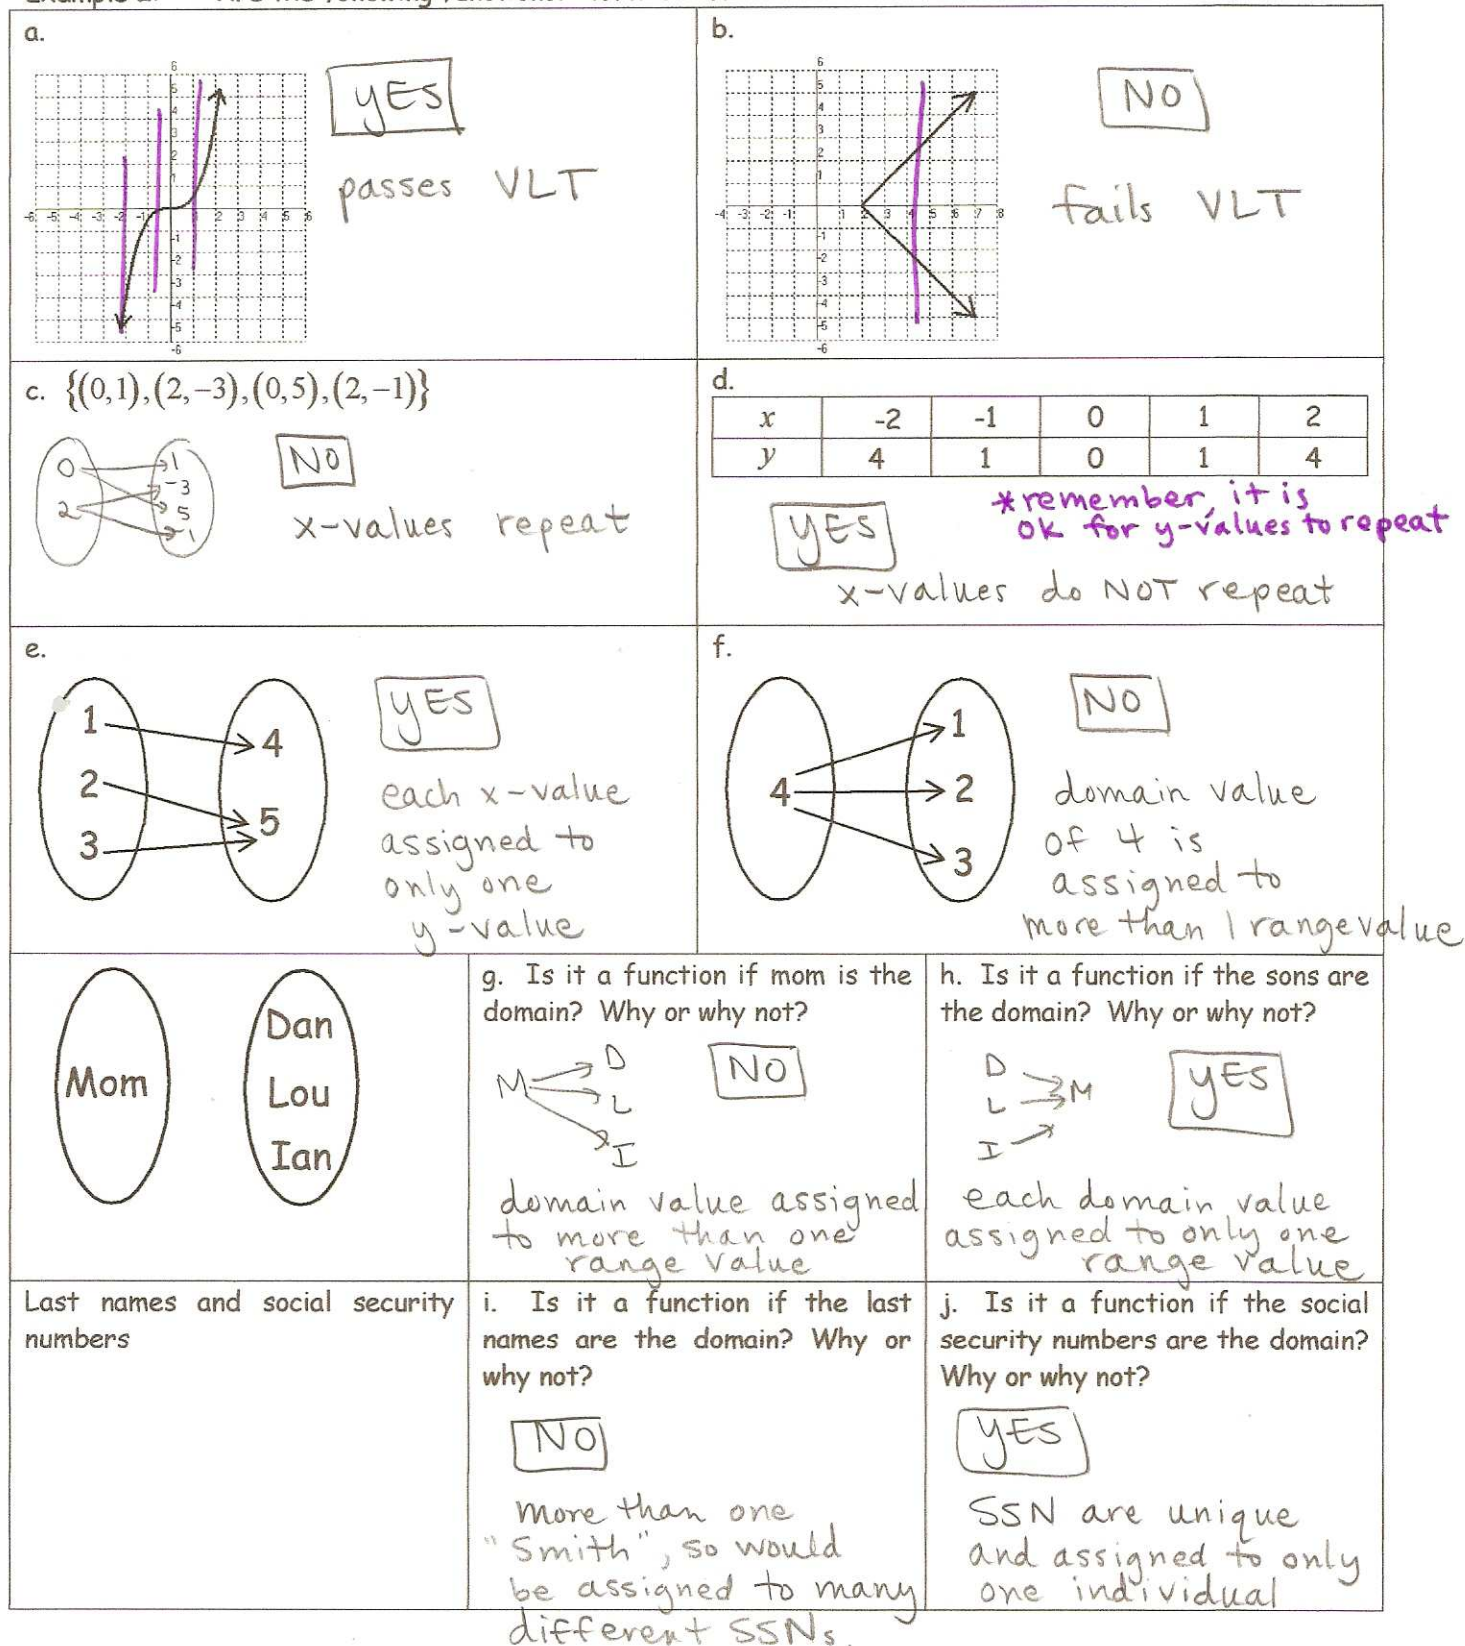 a.
6
5
4
3
2
1
-6 -5 -4 -3 -2 -1 1 2 3 4 5 6
-1
-2
-3
-4
-5
-6
YES
passes VLT
b.
6
5
4
3
2
1
-4 -3 -2 -1 1 2 3 4 5 6 7 8
-1
-2
-3
-4
-5
-6
NO
fails VLT
c. {(0,1),(2,-3),(0,5),(2,-1)}
0 1
-3
2 5
-1
NO
x-values repeat
d.
x -2 -1 0 1 2
y 4 1 0 1 4
YES
*remember, it is
OK for y-values to repeat
x-values do NOT repeat
e.
1 4
2 5
3
YES
each x-value
assigned to
only one
y-value
f.
1
4 2
3
NO
domain value
of 4 is
assigned to
more than 1 range value
Mom
Dan
Lou
Ian
g. Is it a function if mom is the
domain? Why or why not?
M D
L
I
NO
domain value assigned
to more than one
range value
h. Is it a function if the sons are
the domain? Why or why not?
D
L M
I
YES
each domain value
assigned to only one
range value
Last names and social security
numbers
i. Is it a function if the last
names are the domain? Why or
why not?
NO
more than one
"Smith", so would
be assigned to many
different SSNs.
j. Is it a function if the social
security numbers are the domain?
Why or why not?
YES
SSN are unique
and assigned to only
one individual